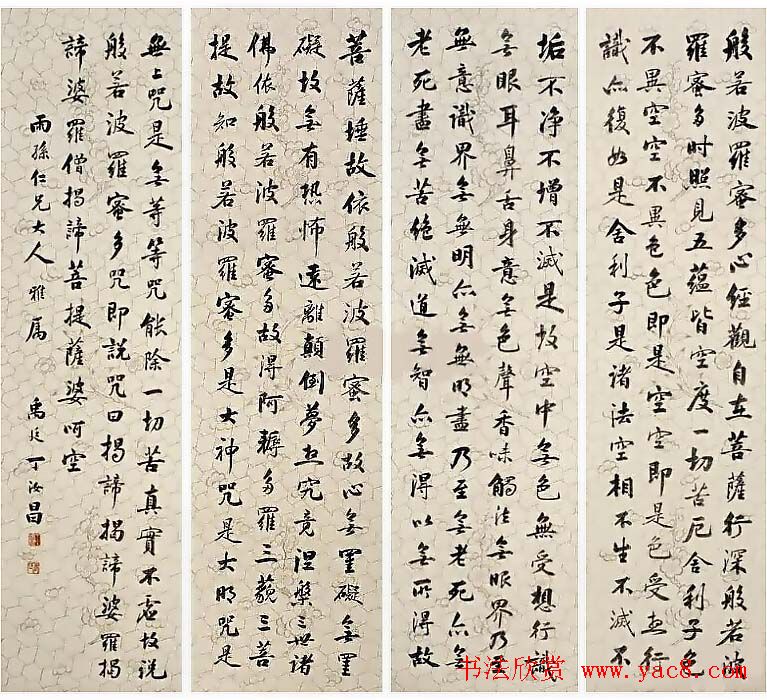 般若波羅蜜多心經觀自在菩薩行深般若波
羅蜜多時照見五蘊皆空度一切苦厄舍利子色
不異空空不異色色即是空空即是色受想行
識亦復如是舍利子是諸法空相不生不滅不
垢不净不增不滅是故空中無色無受想行識
無眼耳鼻舌身意無色聲香味觸法無眼界乃至
無意識界無無明亦無無明盡乃至無老死亦無
老死盡無苦絶滅道無智亦無得以無所得故
菩薩埵故依般若波羅蜜多故心無罣礙無罣
礙故無有恐怖遠離顛倒夢想究竟涅槃三世諸
佛依般若波羅蜜多故得阿耨多羅三藐三菩
提故知般若波羅蜜多是大神咒是大明咒是
無上咒是無等等咒能除一切苦真實不虛故說
般若波羅蜜多咒即說咒曰揭諦揭諦婆羅揭
諦婆羅僧揭諦菩提薩婆呵空
雨孫仁兄大人 雅属
禹廷丁汝昌
书法欣赏 www.yac8.com